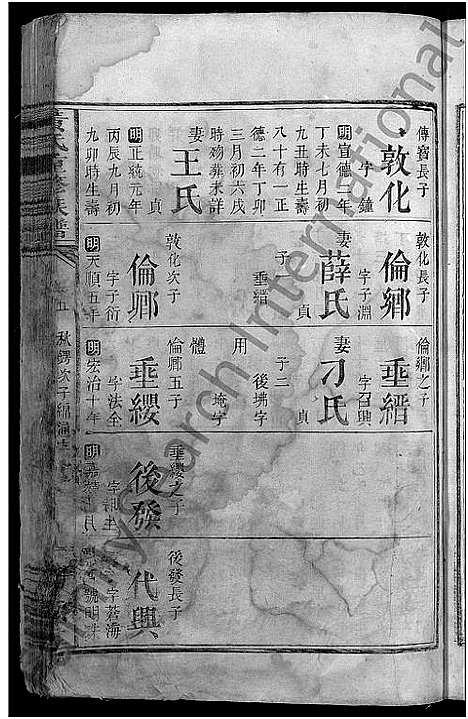 傳寶長子
敦化
字鐘
明宣德二年
丁未七月初
九丑時生壽
八十有一正
德二年丁卯
三月初六戌
時殁葬未詳
妻
王氏
貞
明正統元年
丙辰九月初
九卯時生壽
敦化長子
倫鄉
字子淵
妻
薛氏
貞
子一
垂縉
敦化次子
倫鄉
字子衍
明天順五年
倫鄉之子
垂縉
字召興
妻
刁氏
貞
子二
後坲字
用
埯字
體
倫鄉五子
垂纓
字法全
明宏治十年
垂纓之子
後發
明嘉
後發長子
代興
字蒼海
號明
五
秋鍔次子綿
氏重修族譜